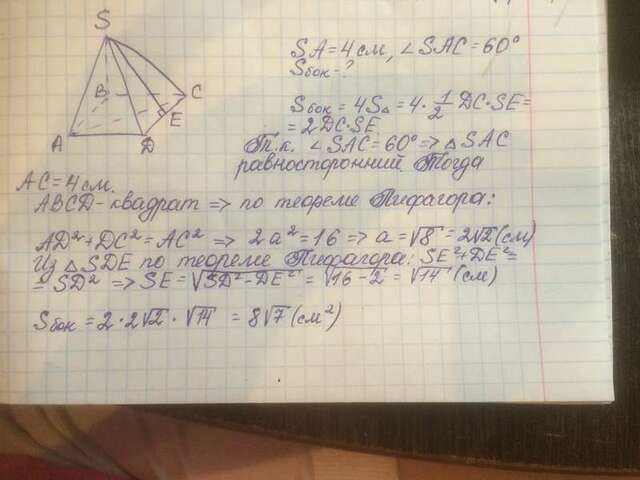 S
B
C
A
D
E
SA = 4 см, ∠SAC = 60°
Sбок - ?
Sбок = 4S△ = 4 · 1/2 DC · SE =
= 2DC · SE.
Т.к. ∠SAC = 60° => △SAC
равносторонний. Тогда
AC = 4 см.
ABCD - квадрат => по теореме Пифагора:
AD² + DC² = AC² => 2a² = 16 => a = √8 = 2√2 (см)
Из △SDE по теореме Пифагора: SE² + DE² =
= SD² => SE = √(SD² - DE²) = √(16 - 2) = √14 (см)
Sбок = 2 · 2√2 · √14 = 8√7 (см²)